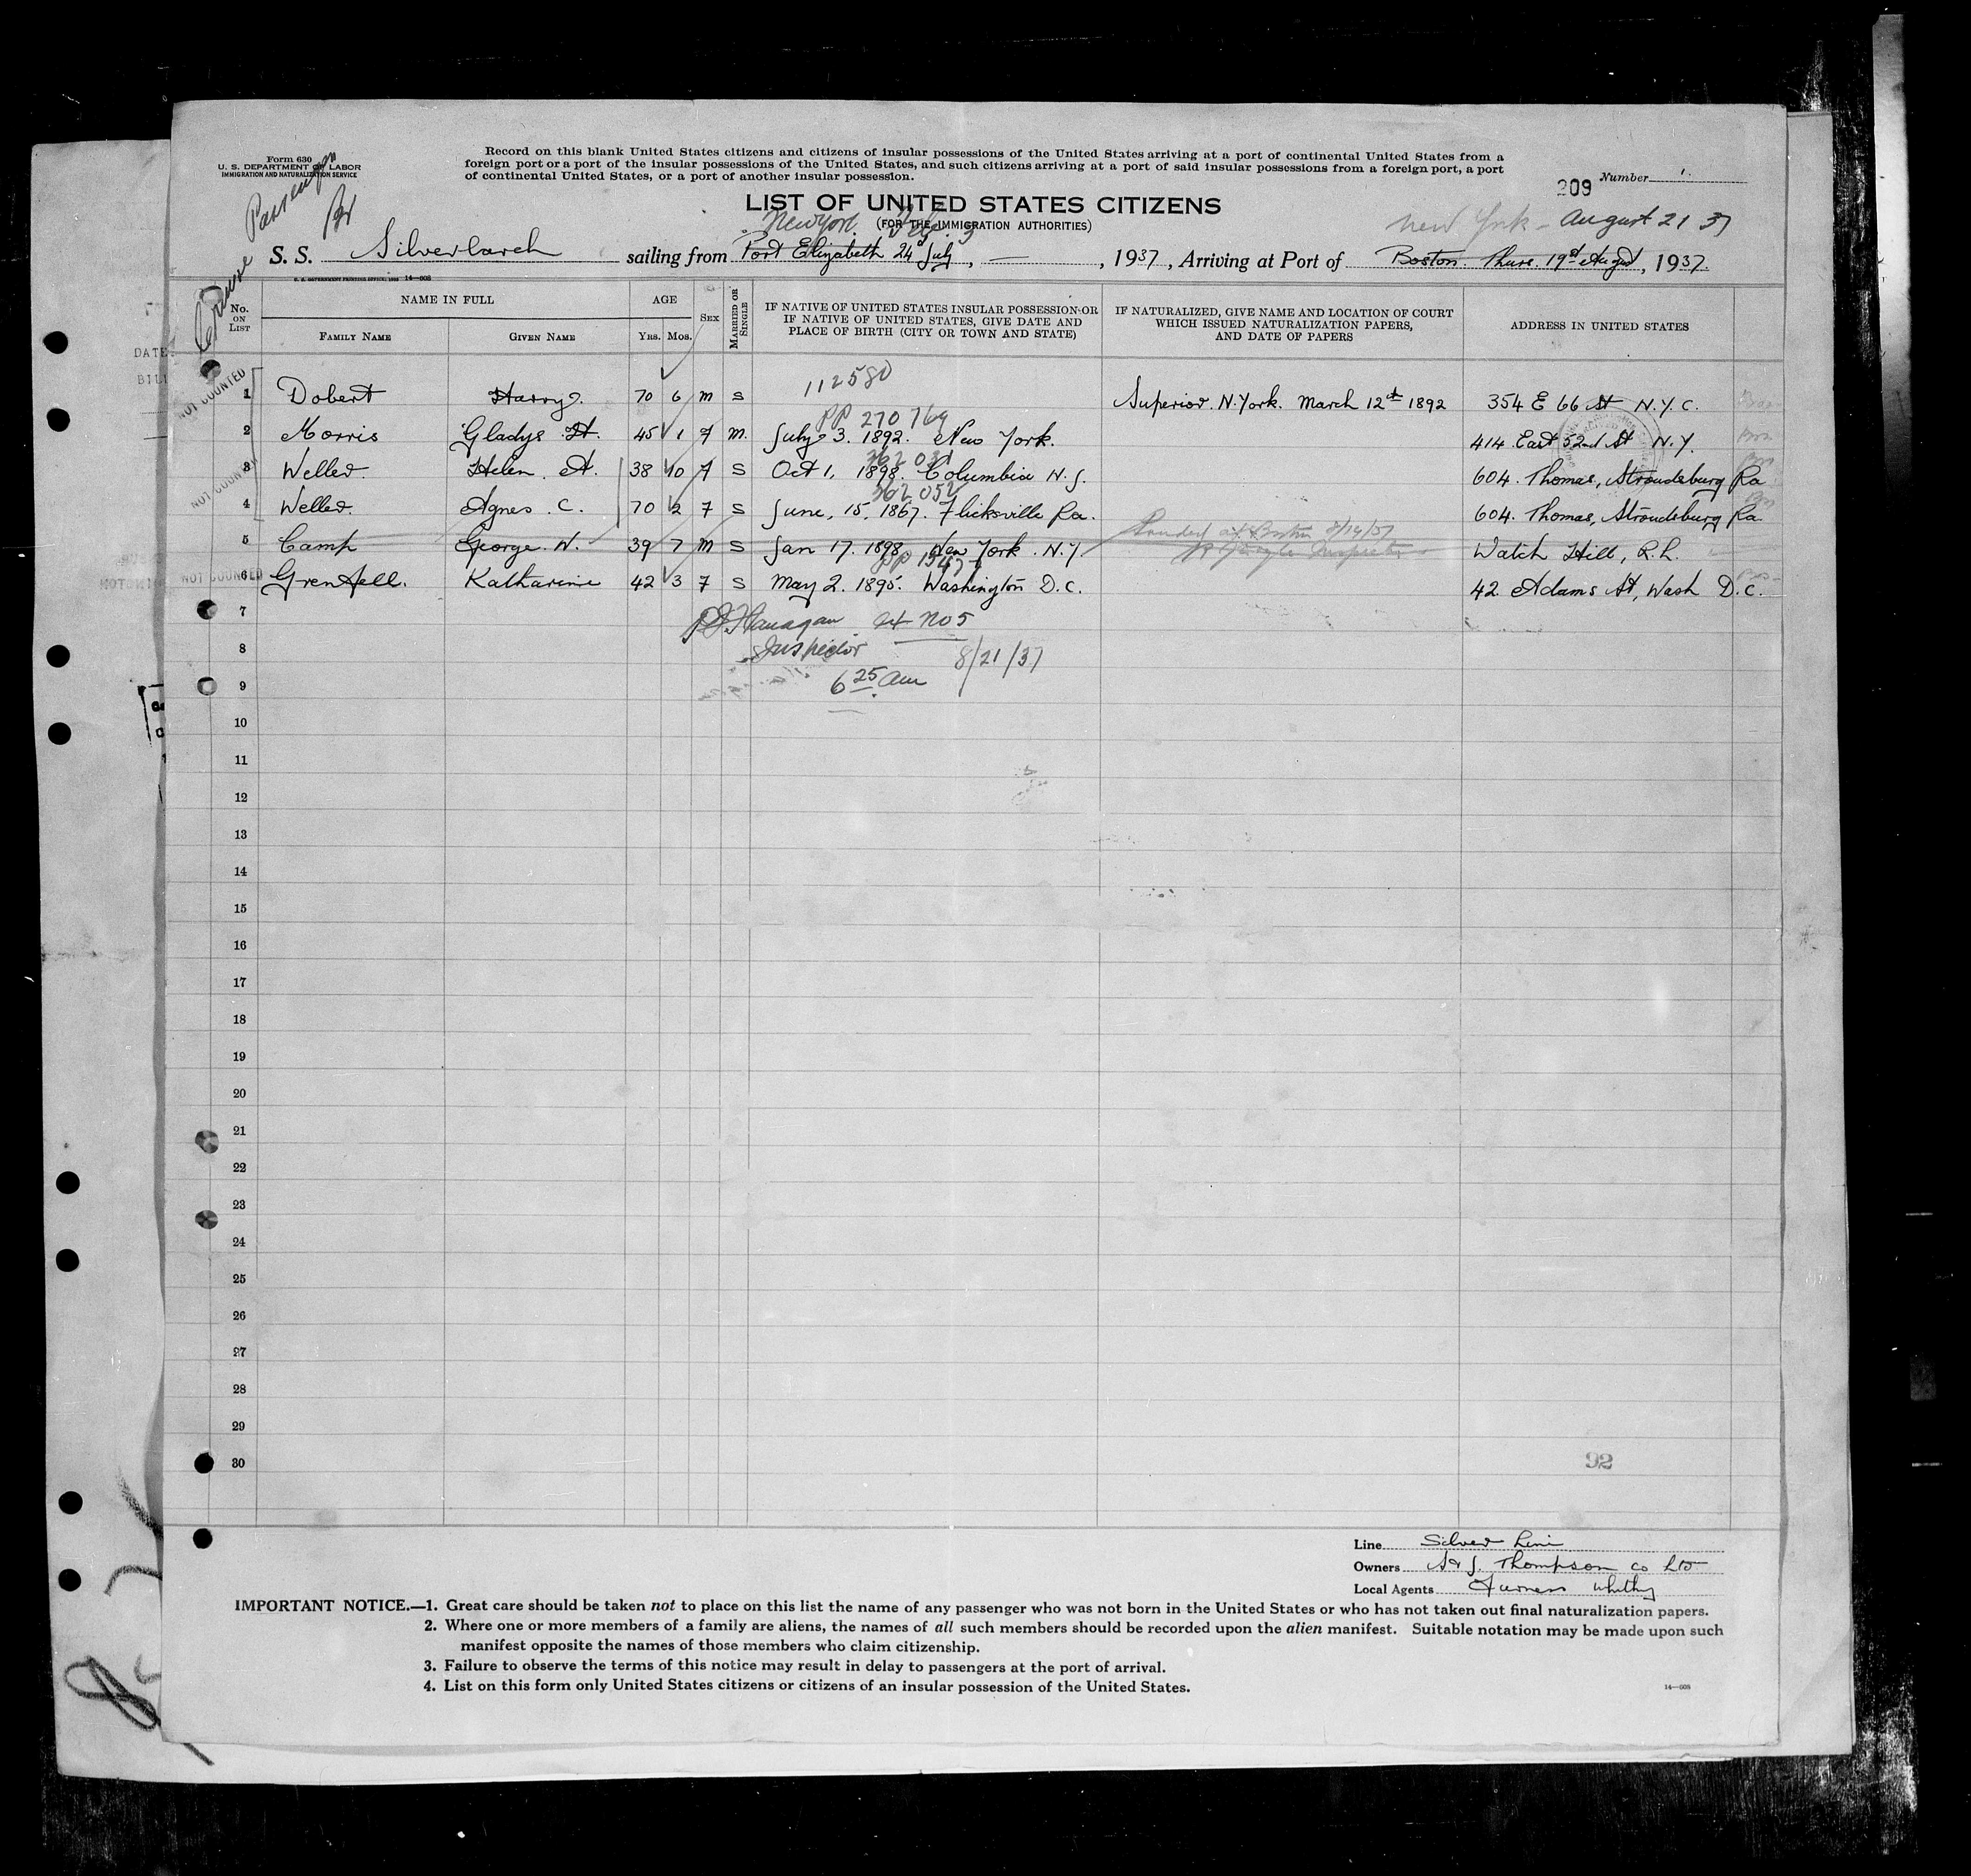 Form 630
U. S. DEPARTMENT OF LABOR
IMMIGRATION AND NATURALIZATION SERVICE
Record on this blank United States citizens and citizens of insular possessions of the United States arriving at a port of continental United States from a
foreign port or a port of the insular possessions of the United States, and such citizens arriving at a port of said insular possessions from a foreign port, a port
of continental United States, or a port of another insular possession.
209 Number 1.
Cruise Passengers
LIST OF UNITED STATES CITIZENS
(FOR THE IMMIGRATION AUTHORITIES)
New York. Feb. 3
New York - August 21 37
S. S. Silverlarch sailing from Port Elizabeth 24 July, —, 1937, Arriving at Port of Boston. Thurs. 19th August, 1937.
U. S. GOVERNMENT PRINTING OFFICE 14—608
No. ON LIST
NAME IN FULL
FAMILY NAME
GIVEN NAME
AGE
YRS. MOS.
SEX
MARRIED OR SINGLE
IF NATIVE OF UNITED STATES INSULAR POSSESSION OR
IF NATIVE OF UNITED STATES, GIVE DATE AND
PLACE OF BIRTH (CITY OR TOWN AND STATE)
IF NATURALIZED, GIVE NAME AND LOCATION OF COURT
WHICH ISSUED NATURALIZATION PAPERS,
AND DATE OF PAPERS
ADDRESS IN UNITED STATES
NOT COUNTED
112580
1 Dobert Harry. 70 6 M S Superior. N. York. March 12th 1892 354 E 66 St N.Y.C.
PP 270769
2 Morris Gladys H. 45 1 F M. July 3. 1892. New York. 414 East 52nd St N.Y.
362031
3 Weller. Helen. A. 38 10 F S Oct 1, 1898. Columbia N. J. 604. Thomas, Stroudsburg Pa
NOT COUNTED
362052
4 Weller. Agnes. C. 70 2 F S June, 15. 1867. Flicksville Pa. 604. Thomas, Stroudsburg Pa
Landed at Boston 8/19/37
5 Camp George. W. 39 7 M S Jan 17. 1898. New York. N.Y Inspector Watch Hill, R.I.
NOT COUNTED
6 Grenfell. Katharine 42 3 F S May 2. 1895. Washington D.C. 42. Adams St, Wash D.C.
7 P J Flanagan No 5
8 Inspector 8/21/37
9 6 25 am
10
11
12
13
14
15
16
17
18
19
20
21
22
23
24
25
26
27
28
29
30
92
Line Silver Line
Owners S & J. Thompson Co Ltd
Local Agents Furness Withy
IMPORTANT NOTICE.—1. Great care should be taken not to place on this list the name of any passenger who was not born in the United States or who has not taken out final naturalization papers.
2. Where one or more members of a family are aliens, the names of all such members should be recorded upon the alien manifest. Suitable notation may be made upon such
manifest opposite the names of those members who claim citizenship.
3. Failure to observe the terms of this notice may result in delay to passengers at the port of arrival.
4. List on this form only United States citizens or citizens of an insular possession of the United States.
14—608